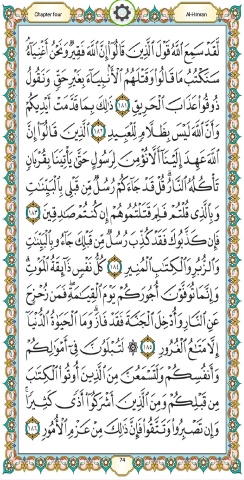 Chapter four
Al-Imran
لَّقَدْ سَمِعَ اللَّهُ قَوْلَ الَّذِينَ قَالُوا إِنَّ اللَّهَ فَقِيرٌ وَنَحْنُ أَغْنِيَاءُ
سَنَكْتُبُ مَا قَالُوا وَقَتْلَهُمُ الْأَنْبِيَاءَ بِغَيْرِ حَقٍّ وَنَقُولُ
ذُوقُوا عَذَابَ الْحَرِيقِ ١٨١ ذَٰلِكَ بِمَا قَدَّمَتْ أَيْدِيكُمْ
وَأَنَّ اللَّهَ لَيْسَ بِظَلَّامٍ لِّلْعَبِيدِ ١٨٢ الَّذِينَ قَالُوا إِنَّ
اللَّهَ عَهِدَ إِلَيْنَا أَلَّا نُؤْمِنَ لِرَسُولٍ حَتَّىٰ يَأْتِيَنَا بِقُرْبَانٍ
تَأْكُلُهُ النَّارُ قُلْ قَدْ جَاءَكُمْ رُسُلٌ مِّن قَبْلِي بِالْبَيِّنَاتِ
وَبِالَّذِي قُلْتُمْ فَلِمَ قَتَلْتُمُوهُمْ إِن كُنتُمْ صَادِقِينَ ١٨٣
فَإِن كَذَّبُوكَ فَقَدْ كُذِّبَ رُسُلٌ مِّن قَبْلِكَ جَاءُو بِالْبَيِّنَاتِ
وَالزُّبُرِ وَالْكِتَابِ الْمُنِيرِ ١٨٤ كُلُّ نَفْسٍ ذَائِقَةُ الْمَوْتِ
وَإِنَّمَا تُوَفَّوْنَ أُجُورَكُمْ يَوْمَ الْقِيَامَةِ فَمَن زُحْزِحَ
عَنِ النَّارِ وَأُدْخِلَ الْجَنَّةَ فَقَدْ فَازَ وَمَا الْحَيَاةُ الدُّنْيَا
إِلَّا مَتَاعُ الْغُرُورِ ١٨٥ ۞ لَتُبْلَوُنَّ فِي أَمْوَالِكُمْ
وَأَنفُسِكُمْ وَلَتَسْمَعُنَّ مِنَ الَّذِينَ أُوتُوا الْكِتَابَ
مِن قَبْلِكُمْ وَمِنَ الَّذِينَ أَشْرَكُوا أَذًى كَثِيرًا
وَإِن تَصْبِرُوا وَتَتَّقُوا فَإِنَّ ذَٰلِكَ مِنْ عَزْمِ الْأُمُورِ ١٨٦
74